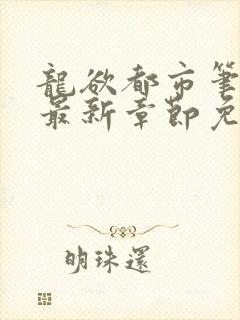 龍欲都市筆
最新章節免
明珠還